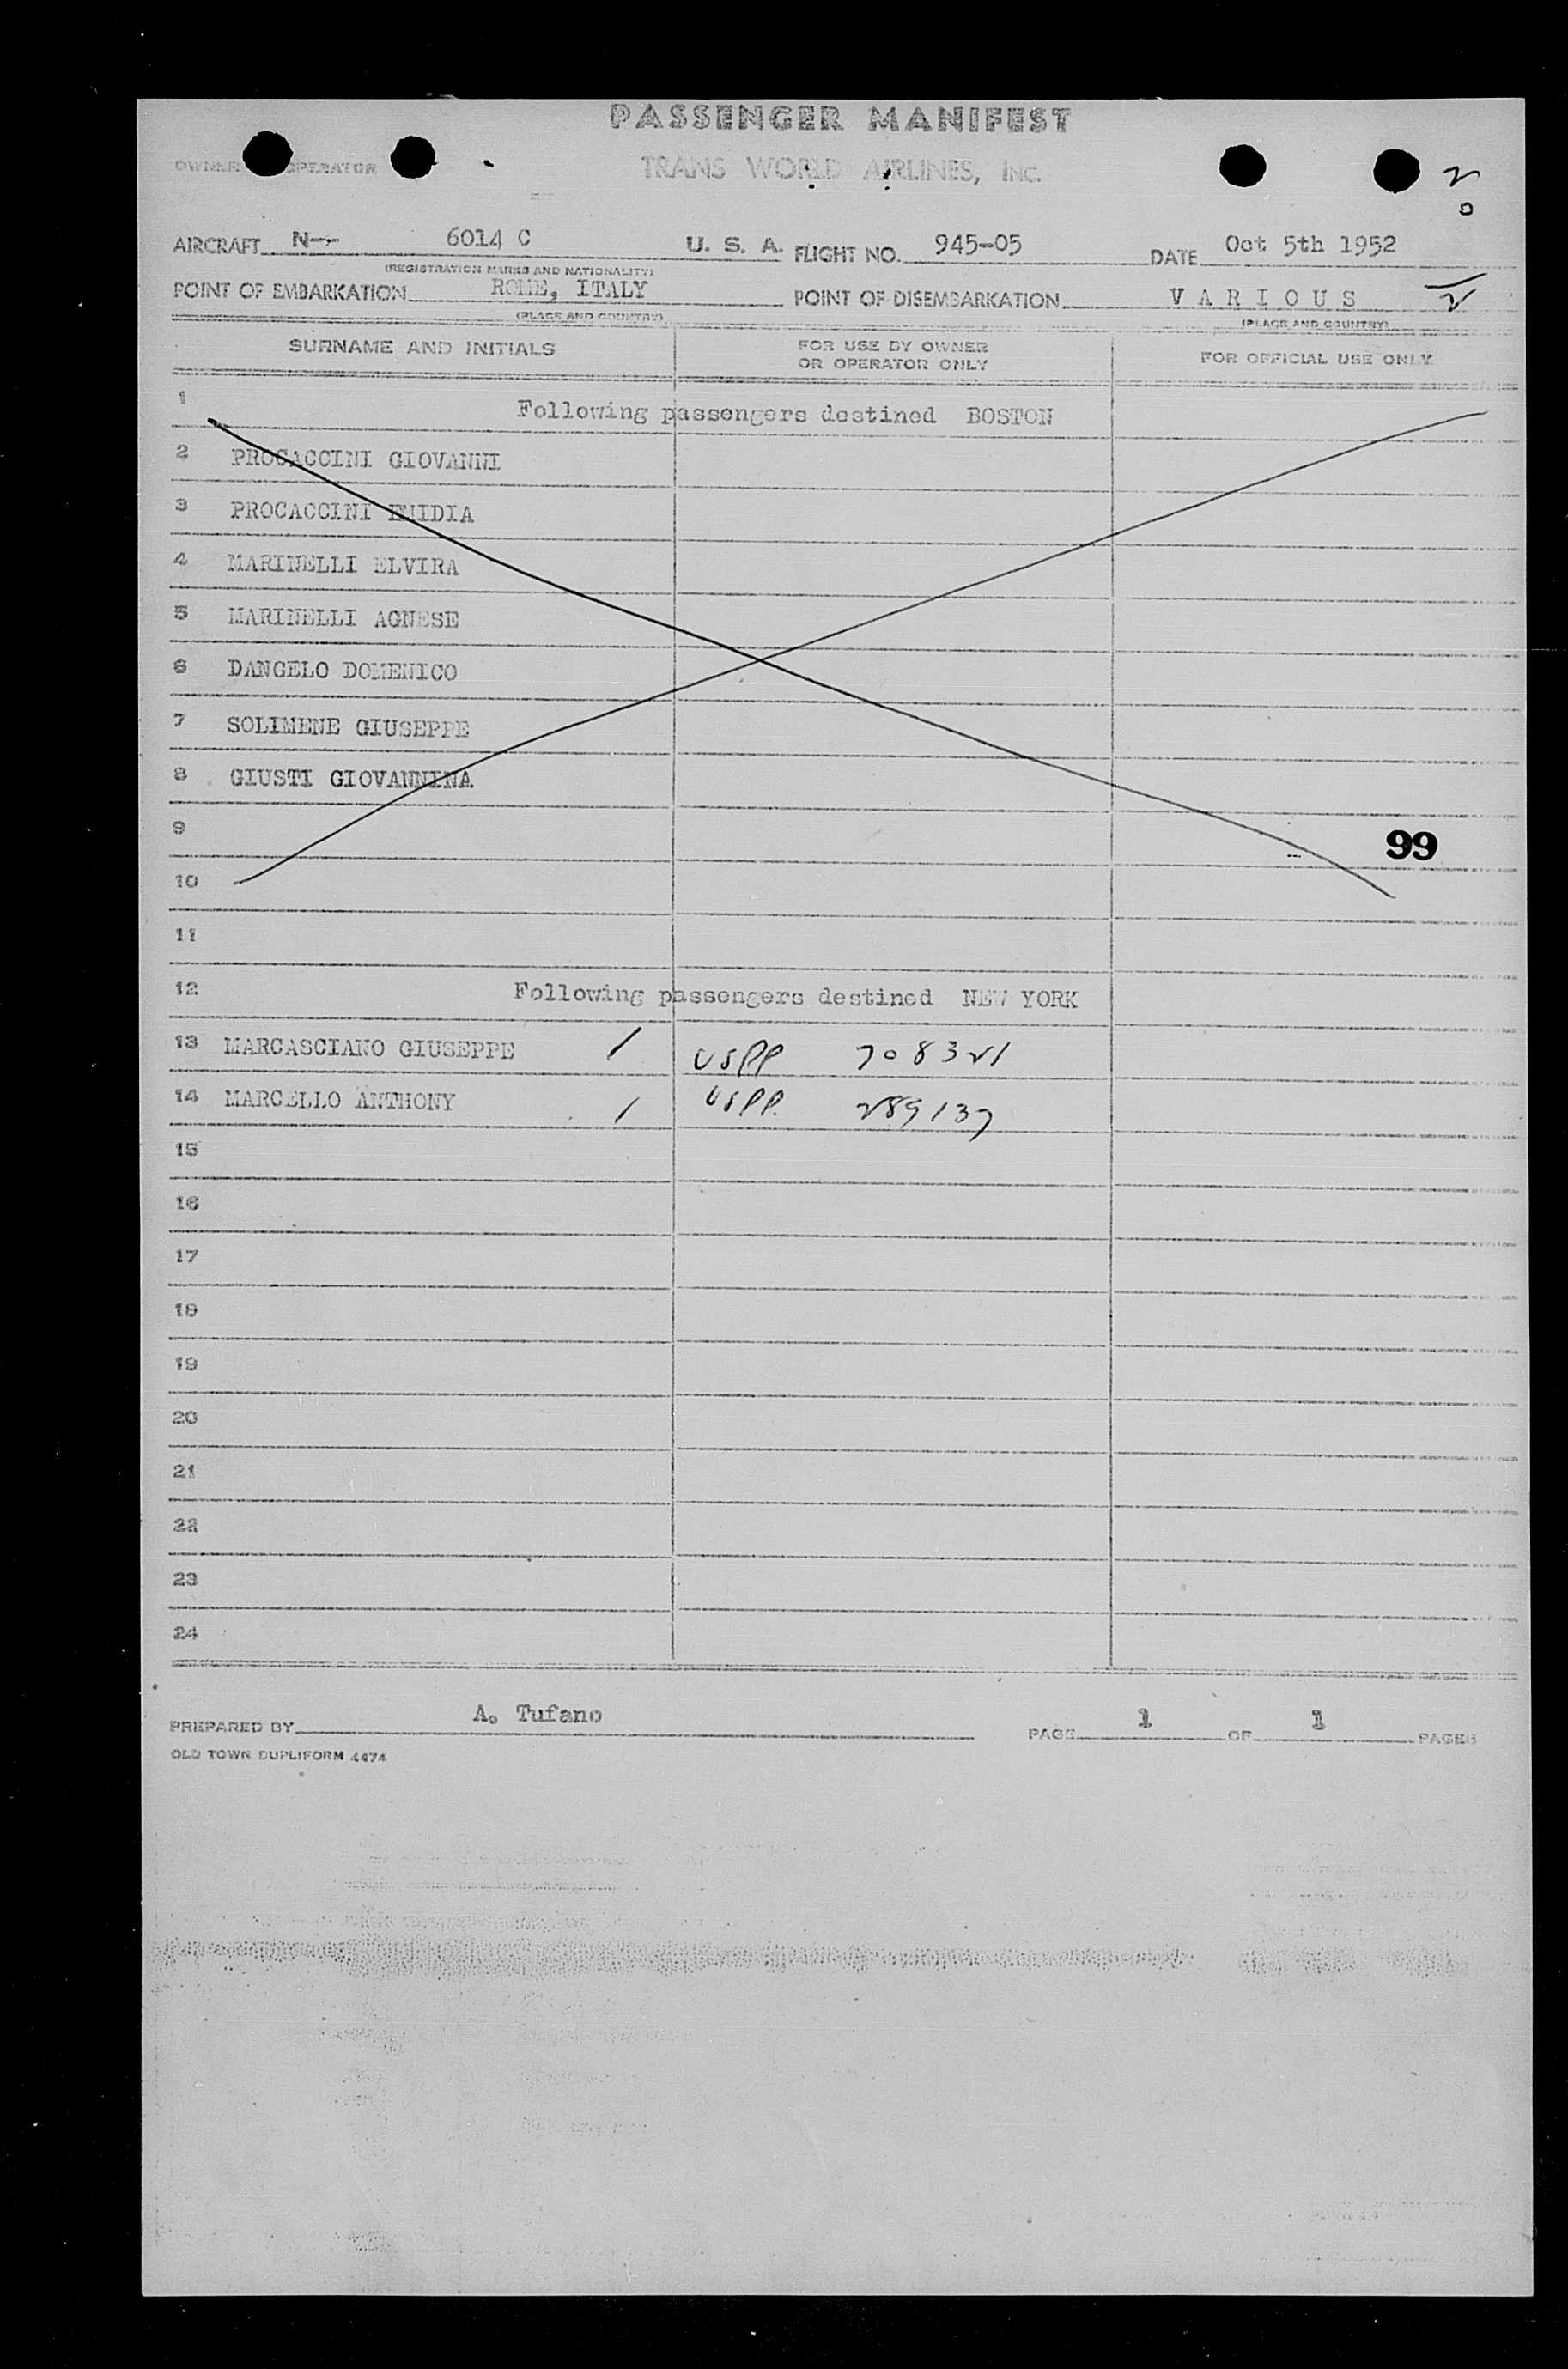 PASSENGER MANIFEST
OWNER OPERATOR TRANS WORLD AIRLINES, INC. 2
0
AIRCRAFT N-- 6014 C U. S. A. FLIGHT NO. 945-05 DATE Oct 5th 1952
(REGISTRATION MARKS AND NATIONALITY)
POINT OF EMBARKATION ROME, ITALY POINT OF DISEMBARKATION V A R I O U S 2
(PLACE AND COUNTRY) (PLACE AND COUNTRY)
SURNAME AND INITIALS FOR USE BY OWNER OR OPERATOR ONLY FOR OFFICIAL USE ONLY
1 Following passengers destined BOSTON
2 PROCACCINI GIOVANNI
3 PROCACCINI
4 MARINELLI ELVIRA
5 MARINELLI AGNESE
6 DANGELO DOMENICO
7 SOLIMENE GIUSEPPE
8 GIUSTI GIOVANNINA
9
99
10
11
12 Following passengers destined NEW YORK
13 MARCASCIANO GIUSEPPE / USPP 708321
14 MARCELLO ANTHONY / USPP. 289137
15
16
17
18
19
20
21
22
23
24
PREPARED BY A. Tufano PAGE 1 OF 1 PAGES
OLD TOWN DUPLIFORM 4474